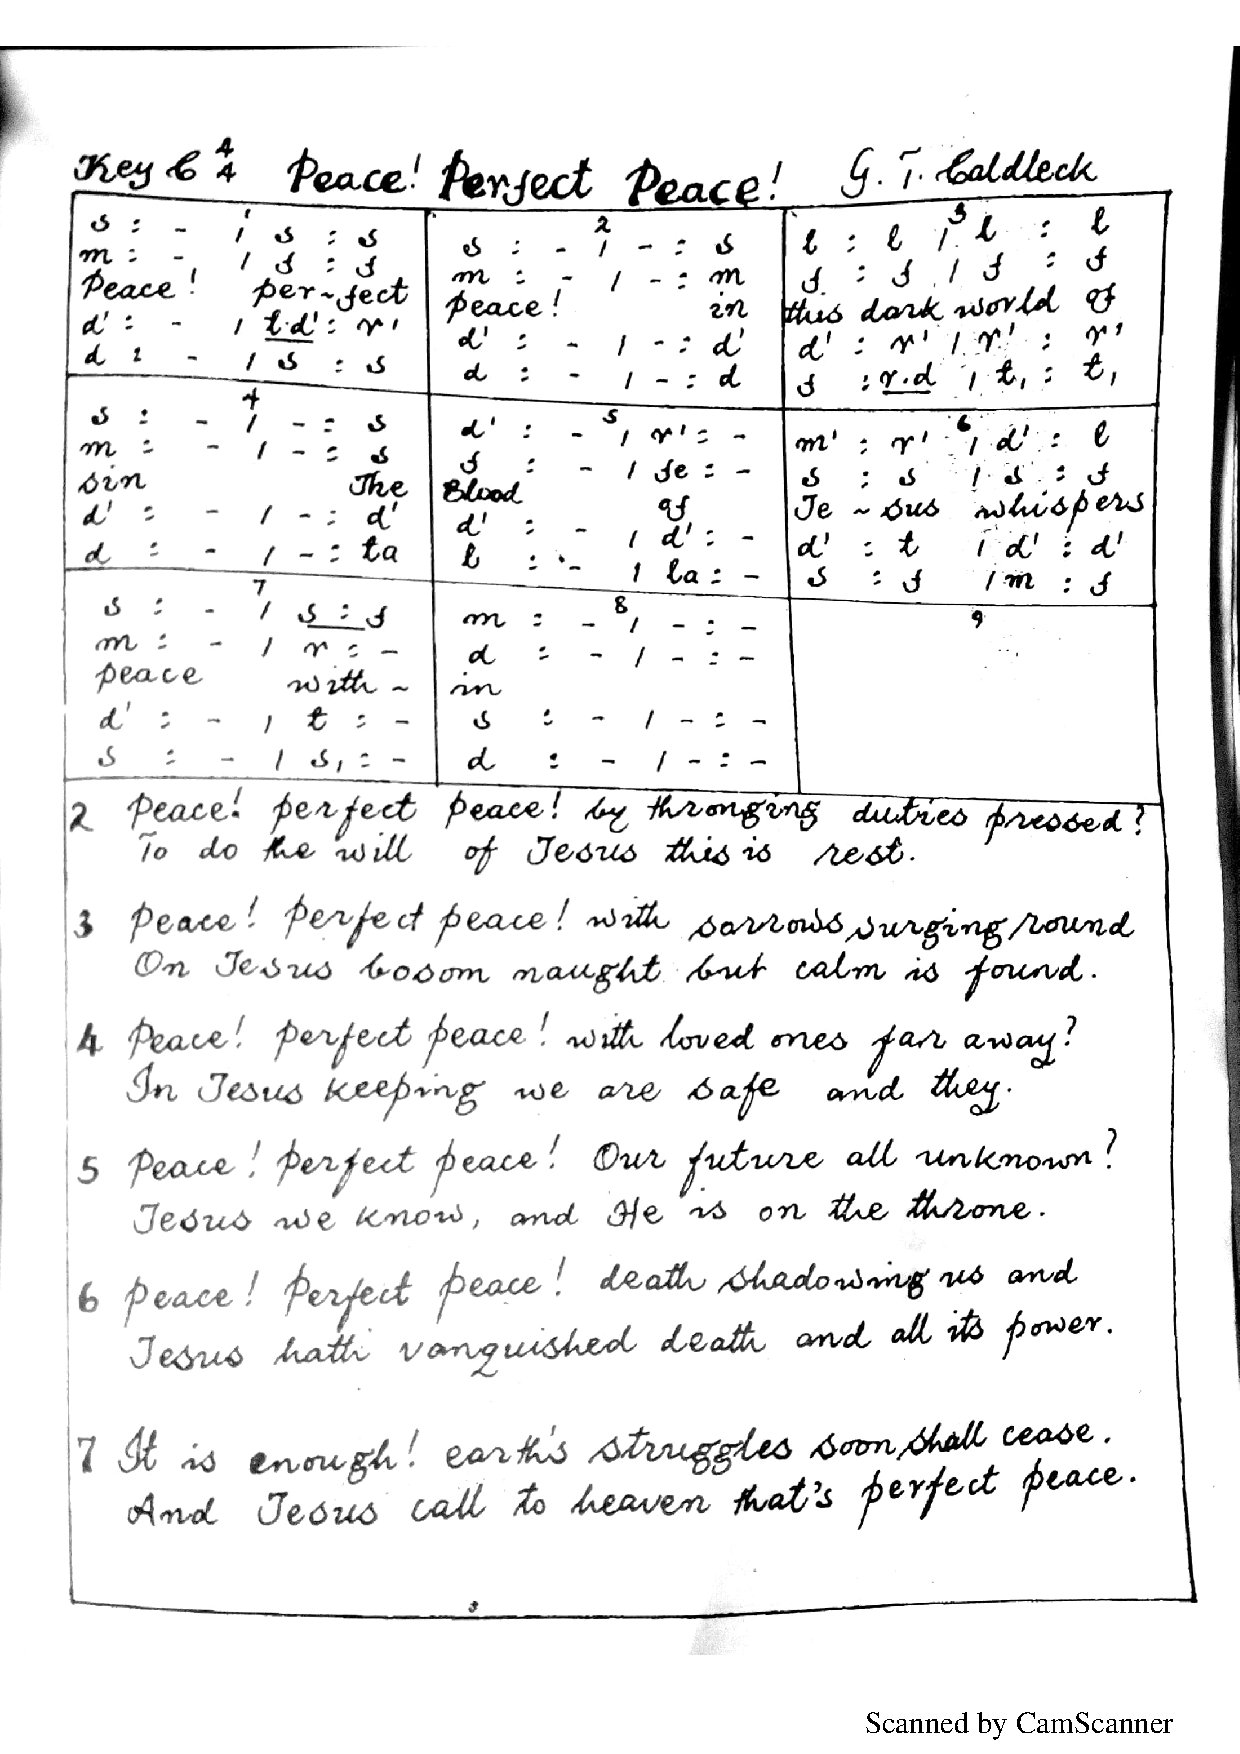 Key C 4/4 Peace! Perfect Peace! G. T. Caldleck
1 2 3
s : - / s : s s : - / - : s l : l / l : l
m : - / f : f m : - / - : m f : f / f : f
Peace! per~fect peace! in this dark world of
d' : - / t.d' : r' d' : - / - : d' d' : r' / r' : r'
d : - / s : s d : - / - : d f : r.d / t, : t,
4 5 6
s : - / - : s d' : - / r' : - m' : r' / d' : l
m : - / - : s f : - / fe : - s : s / s : f
sin The Blood of Je ~ sus whispers
d' : - / - : d' d' : - / d' : - d' : t / d' : d'
d : - / - : ta l : - / la : - s : f / m : f
7 8 9
s : - / s : f m : - / - : -
m : - / r : - d : - / - : -
peace with ~ in
d' : - / t : - s : - / - : -
s : - / s, : - d : - / - : -
2 Peace! perfect peace! by thronging duties pressed?
To do the will of Jesus this is rest.
3 Peace! perfect peace! with sorrows surging round
On Jesus bosom naught but calm is found.
4 Peace! perfect peace! with loved ones far away?
In Jesus keeping we are safe and they.
5 Peace! perfect peace! Our future all unknown?
Jesus we know, and He is on the throne.
6 Peace! Perfect peace! death shadowing us and
Jesus hath vanquished death and all its power.
7 It is enough! earth's struggles soon shall cease.
And Jesus call to heaven that's perfect peace.
Scanned by CamScanner